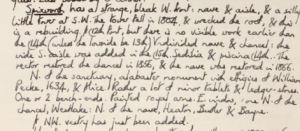 Spixworth has a strange, bleak W. front: nave & aisle, & a silly
little tower at S.W. The tower fell in 1804, & wrecked the roof, & this
is a rebuilding. font, but there is no visible work earlier than
the 14th (unless the lancets be 13th). Undivided nave & chancel: the
wide S. aisle was added in the 14th. Sedilia & piscina, 14th. The
rector restored the chancel in 1856, & the nave had restored in 1856.
N. of the sanctuary, alabaster monument with effigies of William
Peck, 1634, & Alice. Rather a lot of minor tablets & ledger-stones.
One or 2 bench-ends. Painted royal arms. E. window, one N. of the
chancel, Westlake: N. of the nave, Heaton, Butler & Bayne.
A NW. vestry has just been added.